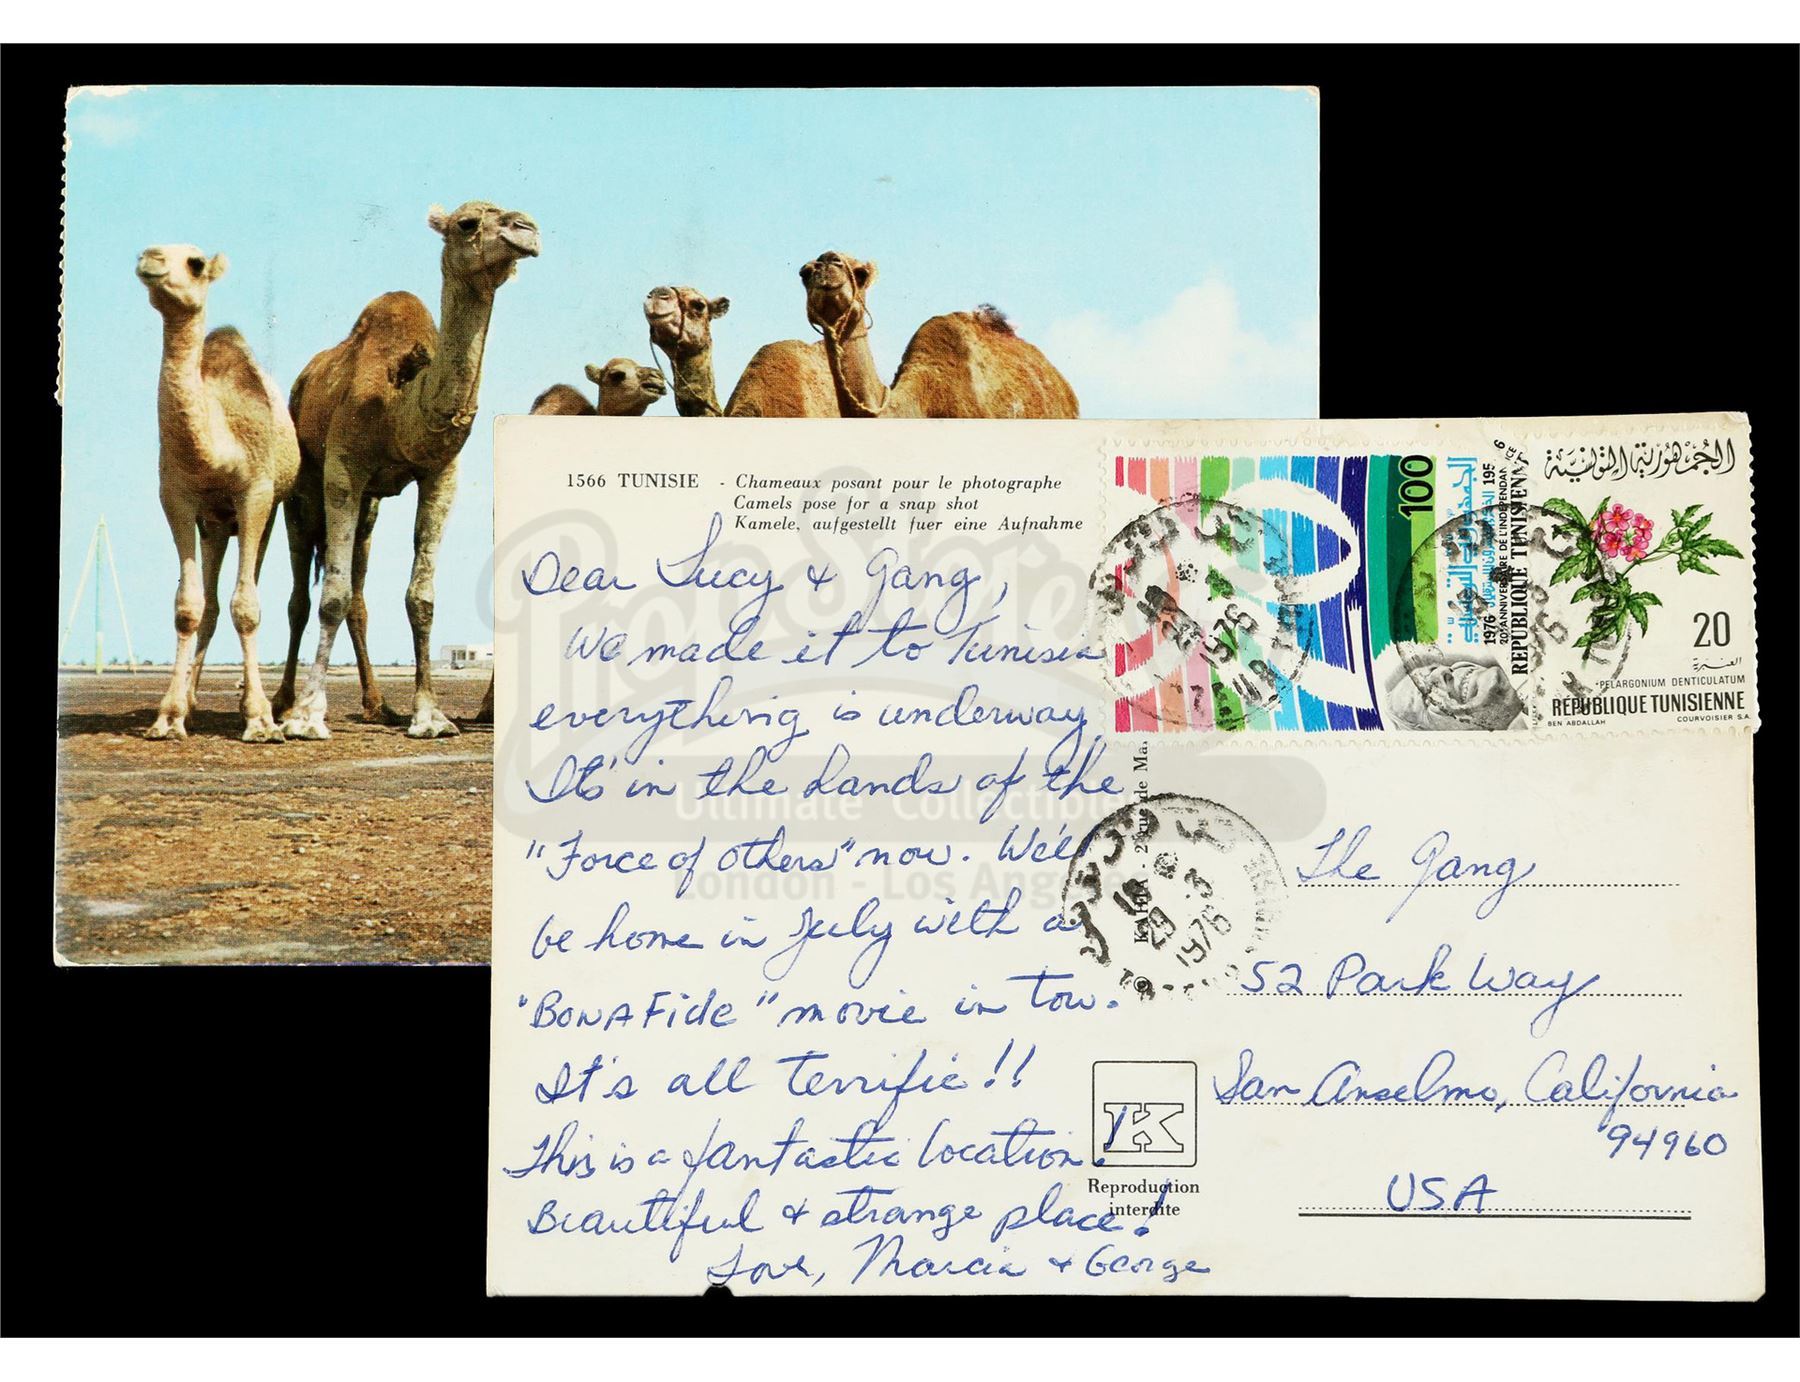 1566 TUNISIE - Chameaux posant pour le photographe
Camels pose for a snap shot
Kamele, aufgestellt fuer eine Aufnahme
Dear Lucy & Gang,
We made it to Tunisia
everything is underway
It's in the hands of the
"Force of others" now. We'll
be home in July with a
"BonAFide" movie in tow.
It's all terrific!!
This is a fantastic location!
Beautiful & strange place!
Love, Marcia & George
100
1976
RÉPUBLIQUE TUNISIENNE
الجمهورية التونسية
20
PELARGONIUM DENTICULATUM
RÉPUBLIQUE TUNISIENNE
BEN ABDALLAH COURVOISIER S.A.
29 -3
1976
The Gang
52 Park Way
San Anselmo, California
94960
USA
K
Reproduction
interdite
Prop Store
Ultimate Collectibles
London - Los Angeles